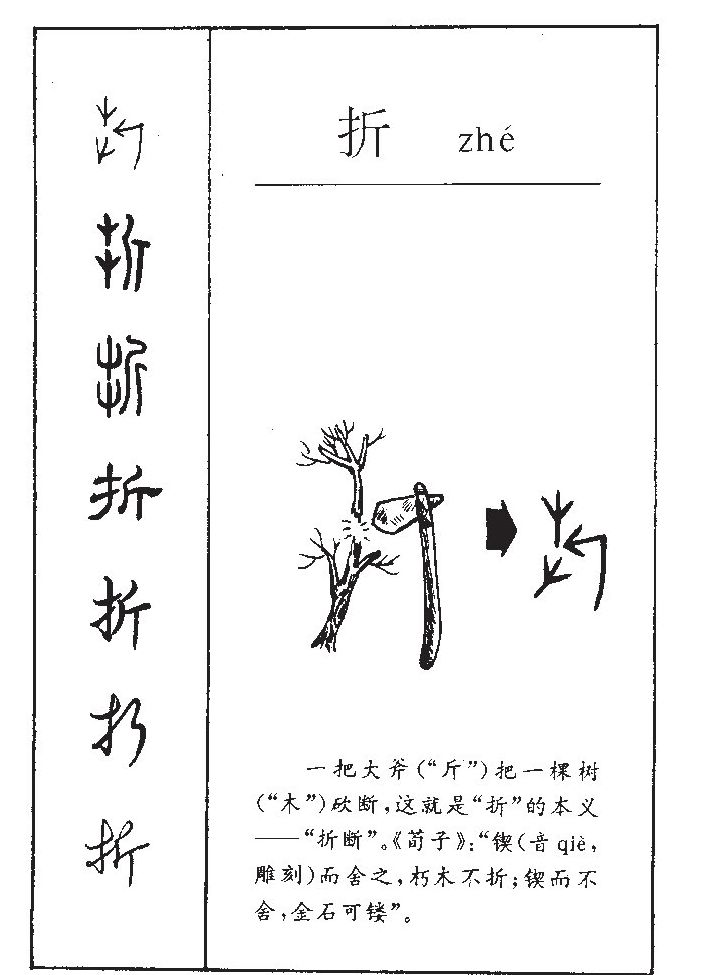 折 zhé
一把大斧(“斤”)把一棵树
(“木”)砍断,这就是“折”的本义
——“折断”。《荀子》:“锲(音qiè,
雕刻)而舍之,朽木不折;锲而不
舍,金石可镂”。
折
折
折
折
折
折
折